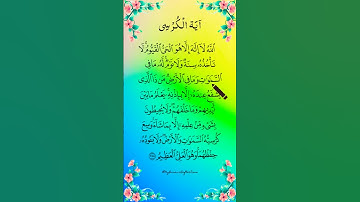 آيَةُ الْكُرْسِي
اللَّهُ لَا إِلَهَ إِلَّا هُوَ الْحَيُّ الْقَيُّومُ لَا
تَأْخُذُهُ سِنَةٌ وَلَا نَوْمٌ لَهُ مَا فِي
السَّمَوَتِ وَمَا فِي الْأَرْضِ مَنْ ذَا الَّذِي
يَشْفَعُ عِنْدَهُ إِلَّا بِإِذْنِهِ يَعْلَمُ مَا بَيْنَ
أَيْدِيهِمْ وَمَا خَلْفَهُمْ وَلَا يُحِيطُونَ
بِشَيْءٍ مِنْ عِلْمِهِ إِلَّا بِمَا شَاءَ وَسِعَ
كُرْسِيُّهُ السَّمَوَتِ وَالْأَرْضَ وَلَا يَئُودُهُ
حِفْظُهُمَا وَهُوَ الْعَلِيُّ الْعَظِيمُ